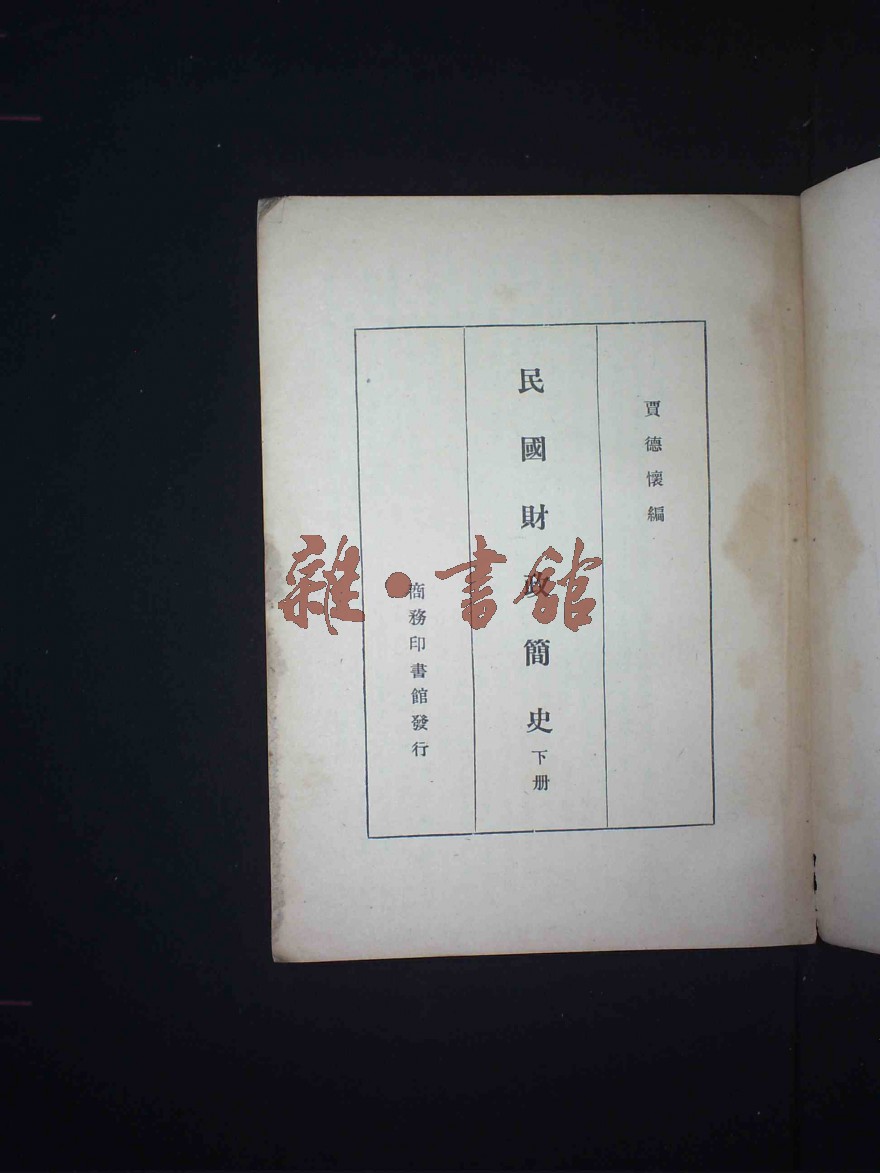 賈德懷編
民國財政簡史下册
商務印書館發行
雜·書館